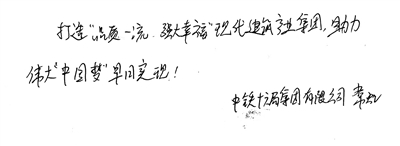 打造“品质一流、强大幸福”现代建筑产业集团，助力
伟大“中国梦”早日实现！
中铁十局集团有限公司